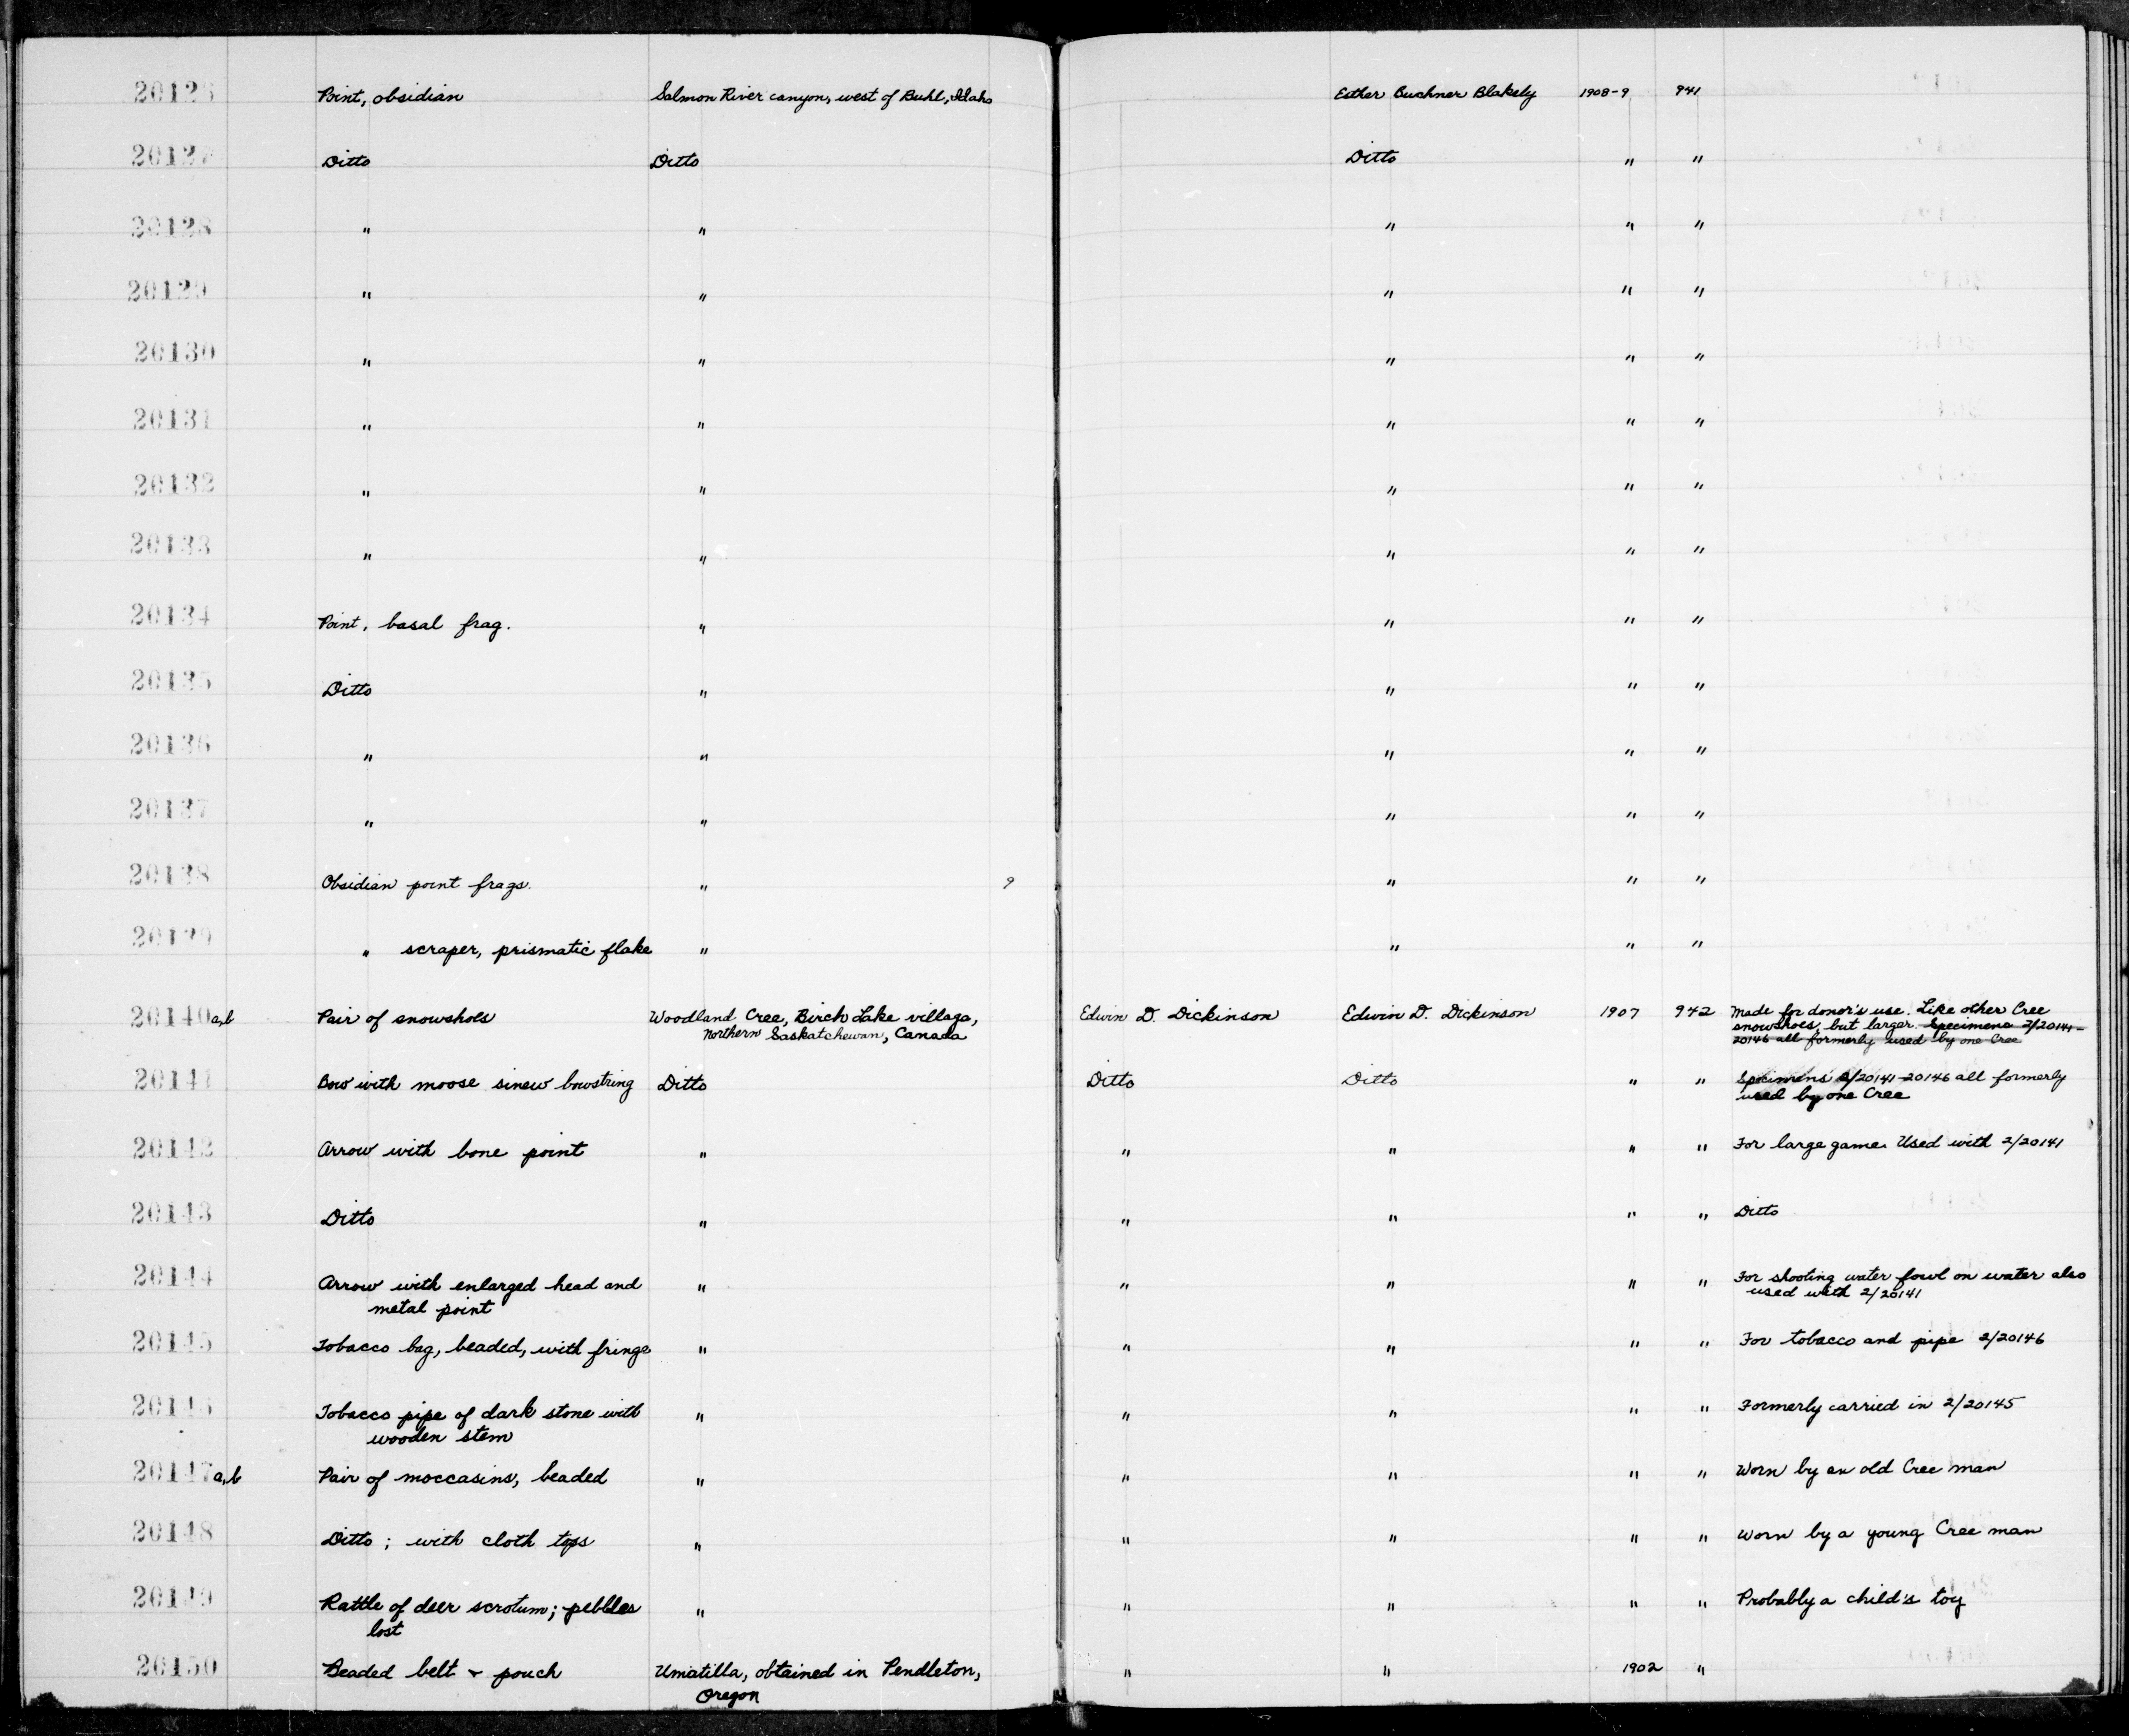 20126 Point, obsidian Salmon River canyon, west of Buhl, Idaho Esther Buchner Blakely 1908-9 941
20127 Ditto Ditto Ditto " "
20128 " " " " "
20129 " " " " "
20130 " " " " "
20131 " " " " "
20132 " " " " "
20133 " " " " "
20134 Point, basal frag. " " " "
20135 Ditto " " " "
20136 " " " " "
20137 " " " " "
20138 Obsidian point frags. " 9 " " "
20139 " scraper, prismatic flake " " " "
20140a,b Pair of snowshoes Woodland Cree, Birch Lake village, Edwin D. Dickinson Edwin D. Dickinson 1907 942 Made for donor's use. Like other Cree
Northern Saskatchewan, Canada snowshoes, but larger. Specimens 2/20141-
20146 all formerly used by one Cree
20141 Bow with moose sinew bowstring Ditto Ditto Ditto " " Specimens 2/20141-20146 all formerly
used by one Cree
20142 Arrow with bone point " " " " " For large game. Used with 2/20141
20143 Ditto " " " " " Ditto
20144 Arrow with enlarged head and " " " " " For shooting water fowl on water also
metal point used with 2/20141
20145 Tobacco bag, beaded, with fringe " " " " " For tobacco and pipe 2/20146
20146 Tobacco pipe of dark stone with " " " " " Formerly carried in 2/20145
wooden stem
20147a,b Pair of moccasins, beaded " " " " " Worn by an old Cree man
20148 Ditto; with cloth tops " " " " " Worn by a young Cree man
20149 Rattle of deer scrotum; pebbles " " " " " Probably a child's toy
lost
20150 Beaded belt + pouch Umatilla, obtained in Pendleton, " " 1902 "
Oregon